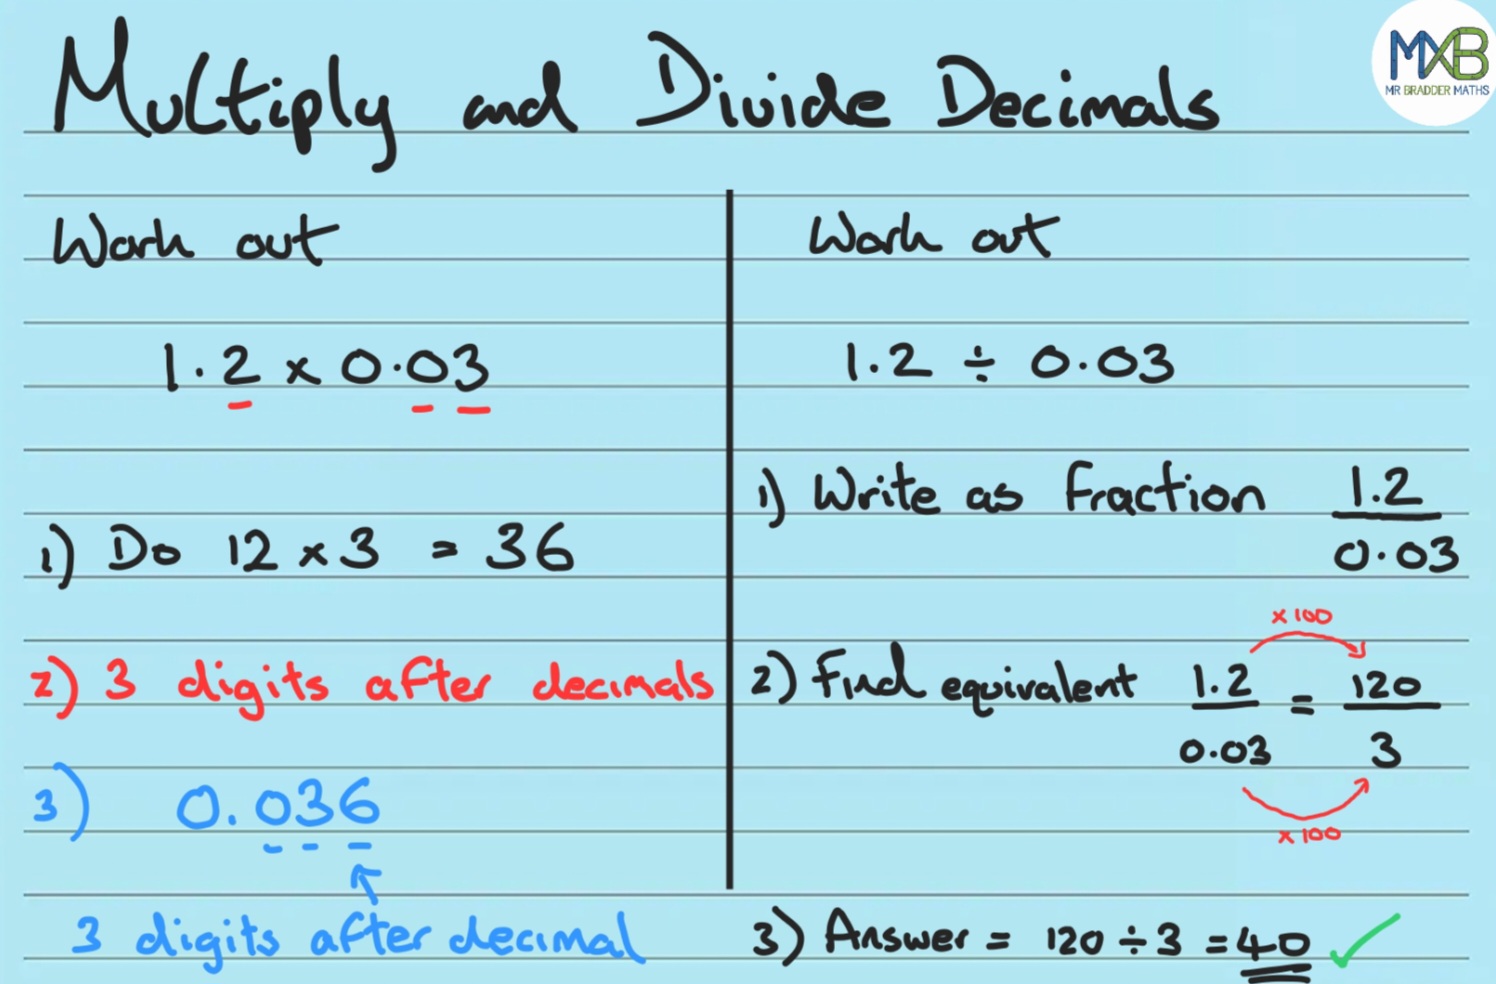 Multiply and Divide Decimals
MXB
MR BRADDER MATHS
Work out
1.2 × 0.03
1) Do 12 × 3 = 36
2) 3 digits after decimals
3) 0.036
3 digits after decimal
Work out
1.2 ÷ 0.03
1) Write as fraction 1.2/0.03
×100
2) Find equivalent 1.2/0.03 = 120/3
×100
3) Answer = 120 ÷ 3 = 40 ✓